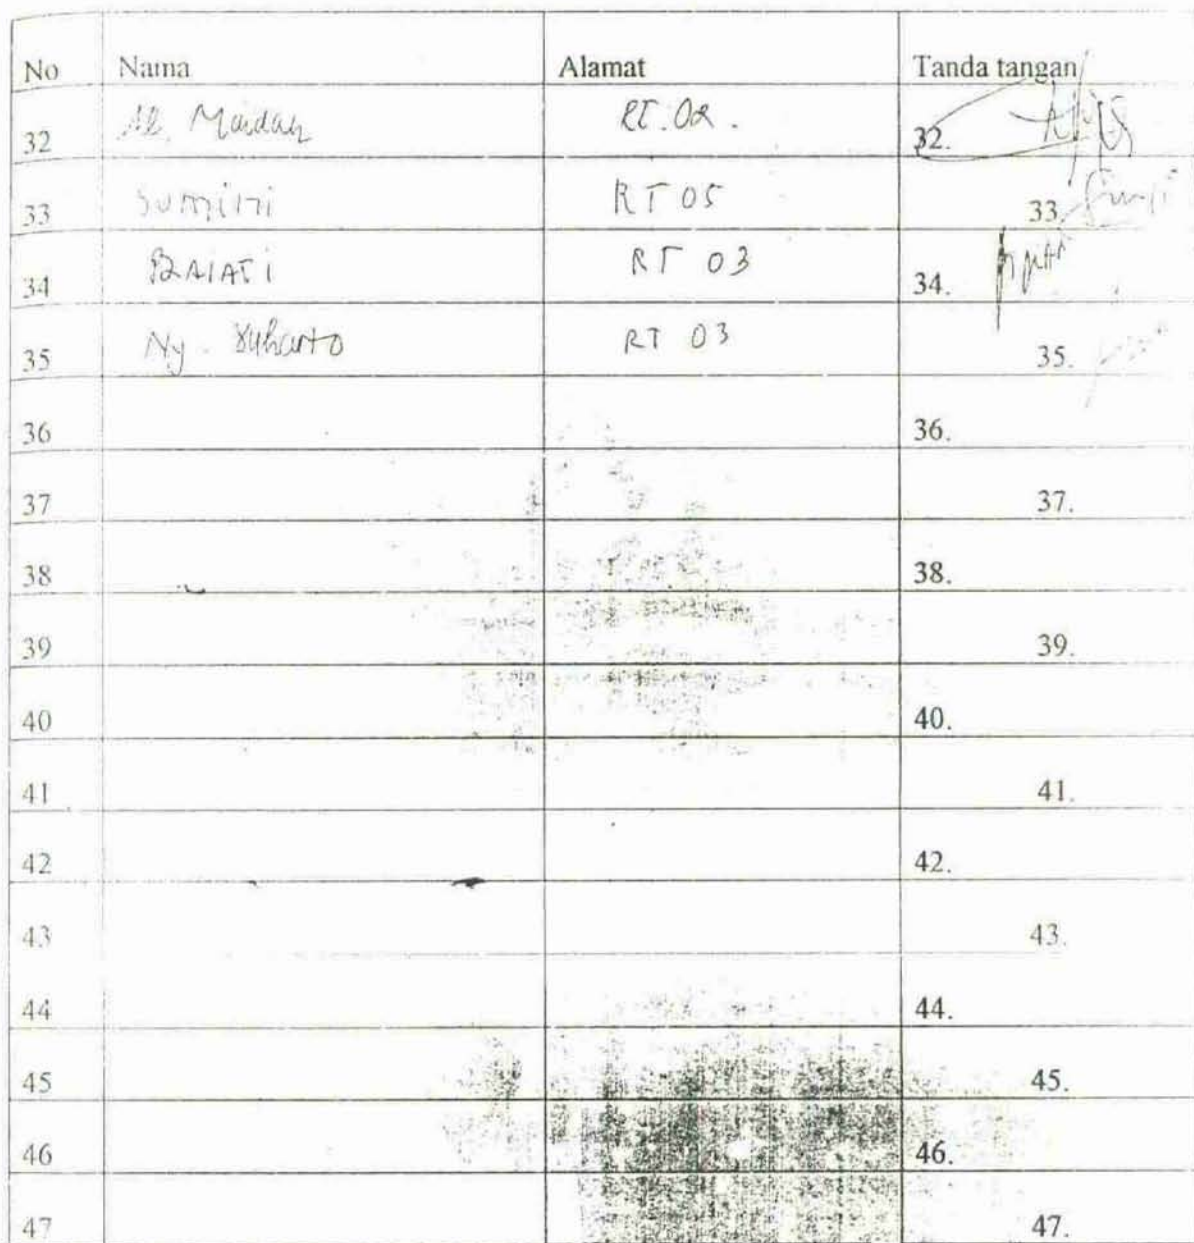 No Nama Alamat Tanda tangan
32 Maidah RT.02. 32.
33 Sumini RT 05 33.
34 RT 03 34.
35 Ny. Suharto RT 03 35.
36 36.
37 37.
38 38.
39 39.
40 40.
41 41.
42 42.
43 43.
44 44.
45 45.
46 46.
47 47.